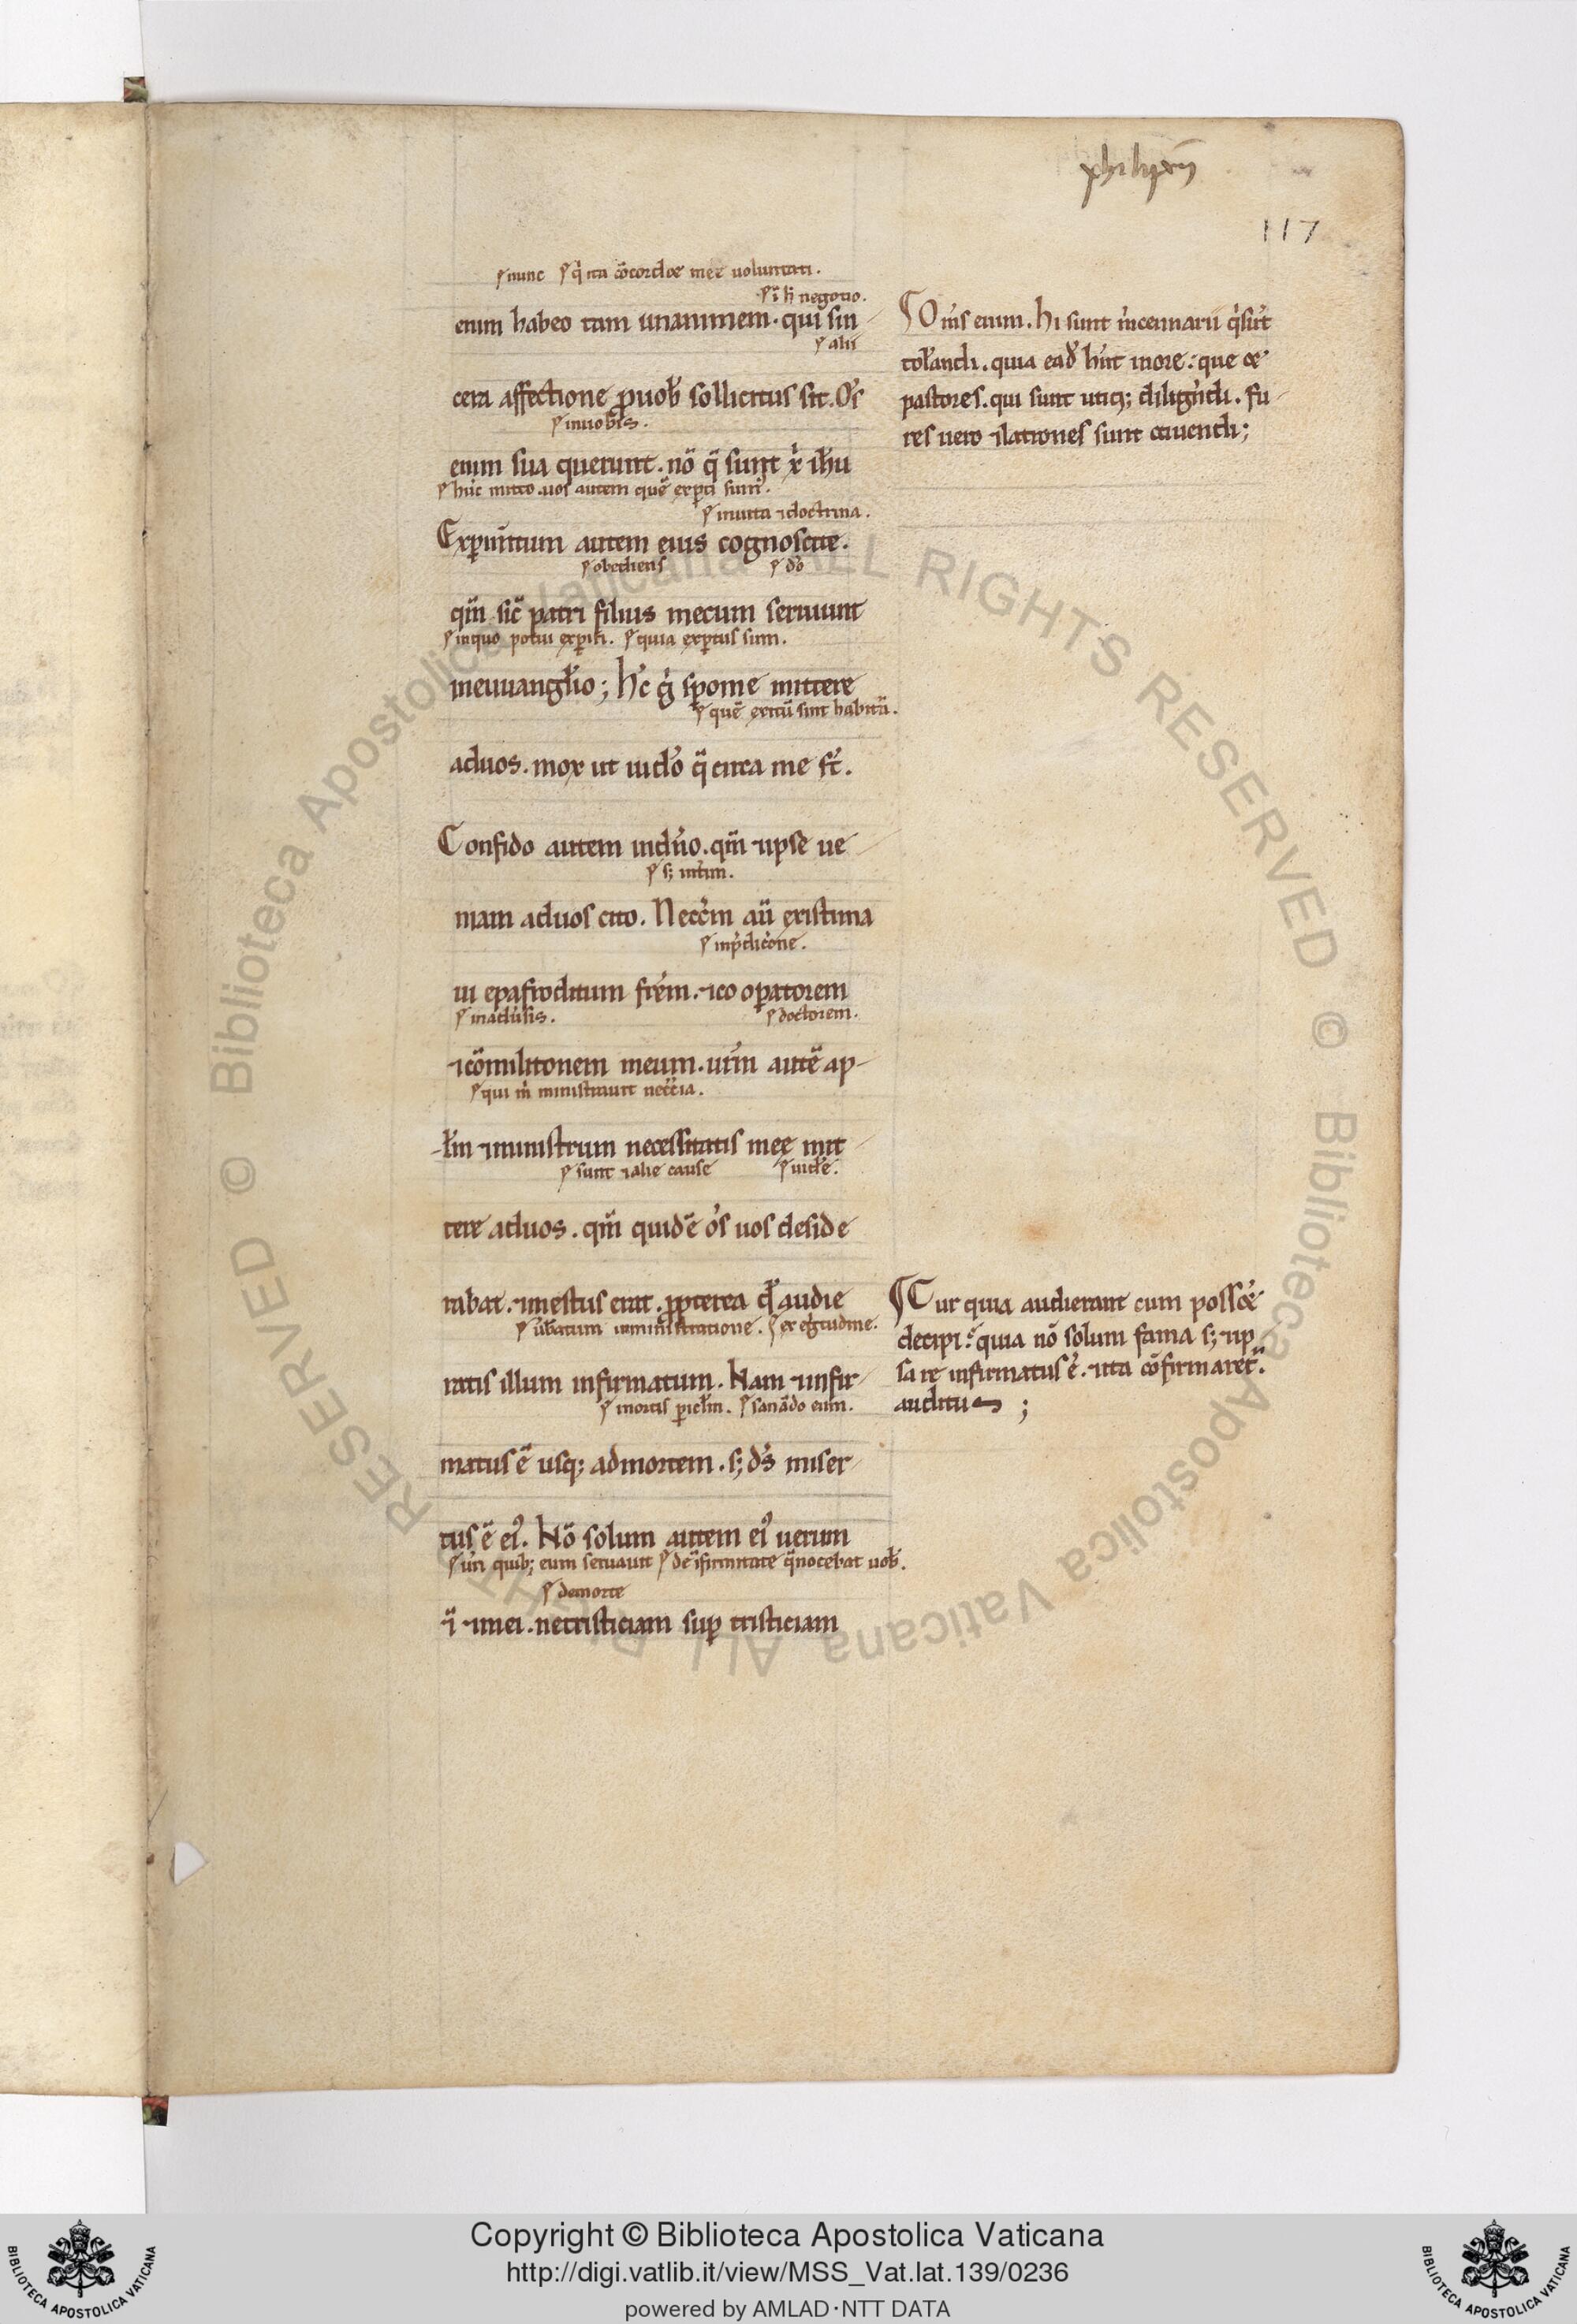 philipen̄
117
nunc qͥ ita cõcordet mee uoluntati.
ī h̄ negotio.
enim habeo tam unanimem. qui sin
alii
cera affectione ꝓ uob̄ sollicitus sit. Om̄s
in uobis.
enim sua querunt. nō q̄ sunt xp̄i ih̄u
hūc mitto. uos autem quē exꝑti sum᷒.
in uita ⁊ doctrina.
Exꝑim̄tum autem eius cognoscite.
obediens dō
qm̄ sic̄ patri filius mecum seruiuit
in quo potui exꝑiri. quia exꝑtus sum.
in euuangl̄io; Hūc gͥ sꝑo me mittere
quē exitū sint habitū.
ad uos. mox ut uid̓o q̄ circa me st̄.
Confido autem in dn̄o. qm̄ ⁊ ipse ue
s; int̓im.
niam ad uos cito. Necc̄m aū existima
in p̄dic̄one.
ui epafroditum fr̄em. ⁊ co oꝑatorem
in adūsis. doctorem.
⁊ cōmilitonem meum. ur̄m autē ap
qui m̄ ministrauit necc̄ia.
l̄m ⁊ ministrum necessitatis meę mit
sunt ⁊ alie cause uid̓e.
tere ad uos. qm̄ quidē om̄s uos deside
rabat. ⁊ mestus erat. ꝓpterea qd̄ audie
in ministratione. ex egͥtudine.
ratis illum infirmatum. Nam ⁊ infir
mortis ꝑicl̄m. sanādo eum.
matus ē usq; ad mortem. s; ds̄ miser
tus ē ei᷒. Nō solum autem ei᷒ uerum
quib; eum seruauit de īfirmitate q̄ nocebat uob̄.
de morte
⁊ mei. ne tristiciam suꝑ tristiciam
Om̄s enim. Hi sunt m̓cennarii qͥ sūt
tol̓andi. quia ead̄ hn̄t in ore. que et
pastores. qui sunt utiq; dilig̓ndi. Fu
res uero ⁊ latrones sunt cauendi;
Cur quia audierant cum possēt
decipi. quia nō solum fama s; ⁊ ip
sa re infirmatus ē. ⁊ ita cōfirmaret᷒.
auditus;
Copyright © Biblioteca Apostolica Vaticana
http://digi.vatlib.it/view/MSS_Vat.lat.139/0236
powered by AMLAD·NTT DATA
BIBLIOTECA APOSTOLICA VATICANA
BIBLIOTECA APOSTOLICA VATICANA
© Biblioteca Apostolica Vaticana ALL RIGHTS RESERVED © Biblioteca Apostolica Vaticana ALL RIGHTS RESERVED